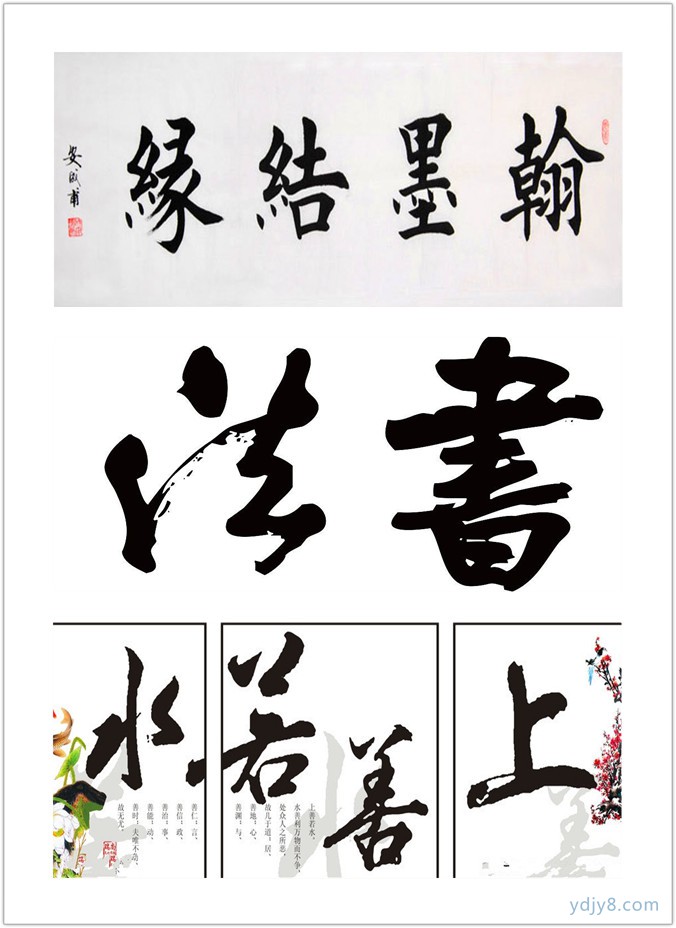 翰墨結縁
書法
上善若水
上善若水，
水善利万物而不争，
处众人之所恶，
故几于道；居、
善地；心、
善渊；与、
善仁；言、
善信；政、
善治；事、
善能；动、
善时；夫唯不争，
故无尤。
ydjy8.com